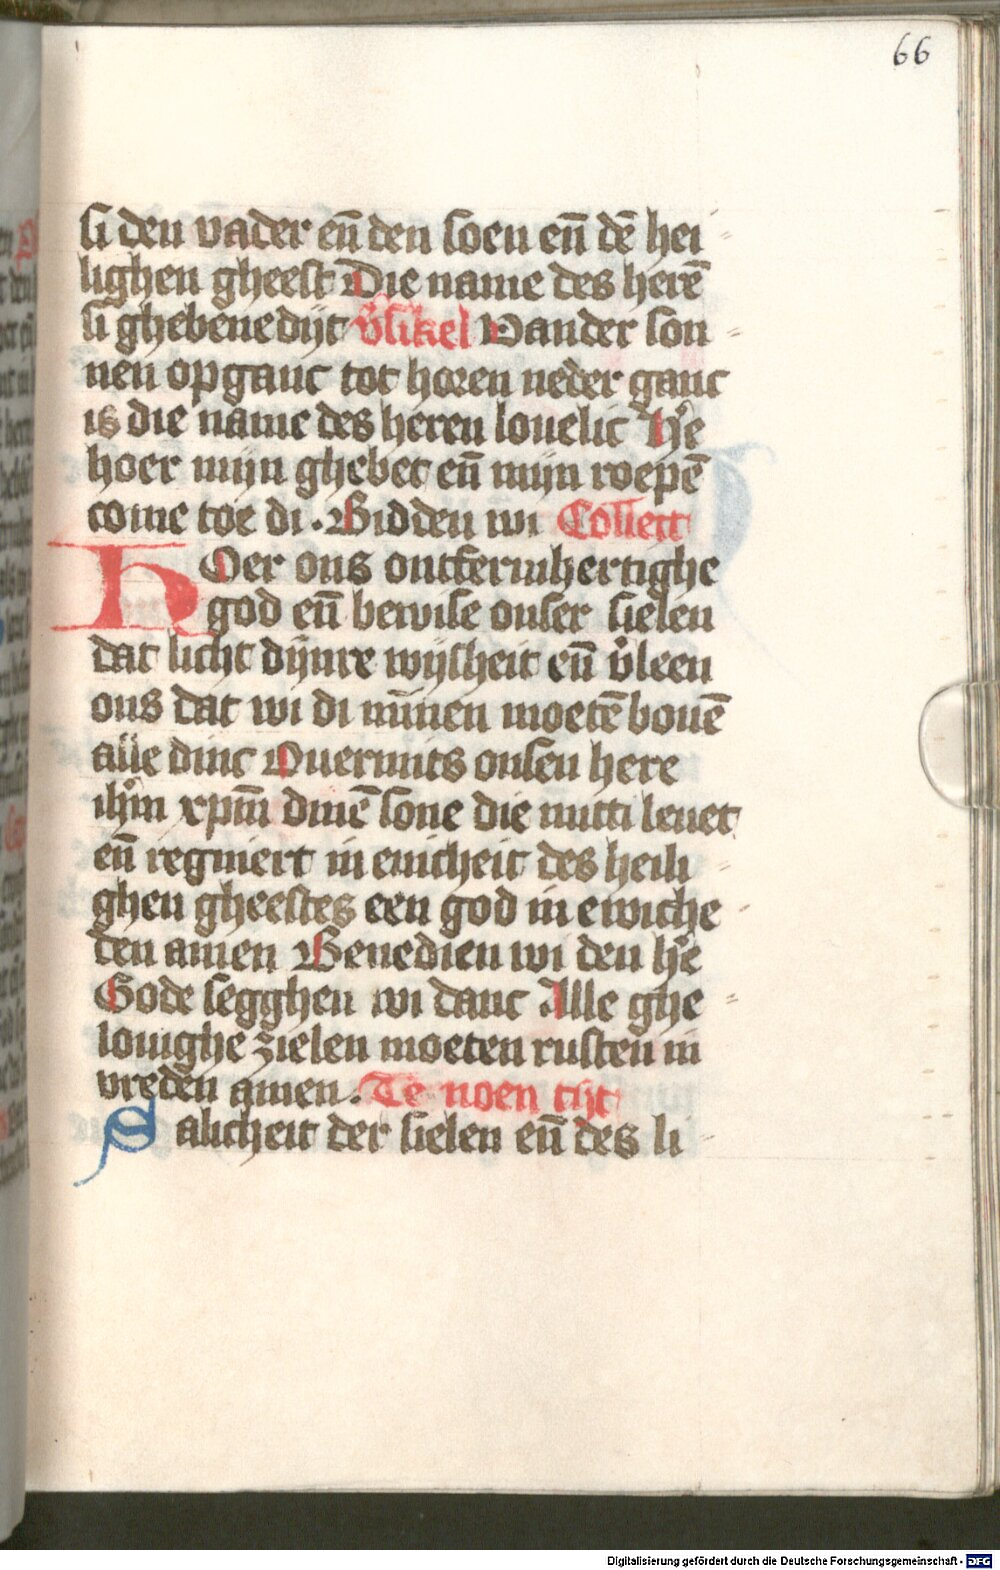 66
si den vader en̄ den soen en̄ dē hei⸗
lighen gheest Die name des herē
si ghebenedijt v̾sikel Vander son⸗
nen opganc tot horen neder ganc
is die name des heren louelic He͛
hoer mijn ghebet en̄ mijn roepē
come toe di . Bidden wi Collect
HOer ons ontfermhertighe
god en̄ bewise onser sielen
dat licht dijnre wijsheit en̄ v̾leen
ons dat wi di mīnen moetē bouē
alle dinc Ouermits onsen here
ihm̄ xpm̄ dinē sone die mitti leuet
en̄ regniert in enicheit des heili⸗
ghen gheestes een god in ewiche⸗
den amen Benedien wi den he͛
Gode segghen wi danc Alle ghe⸗
louighe zielen moeten rusten in
vreden amen . Te noen tijt
Salicheit der sielen en̄ des li⸗
Digitalisierung gefördert durch die Deutsche Forschungsgemeinschaft - DFG